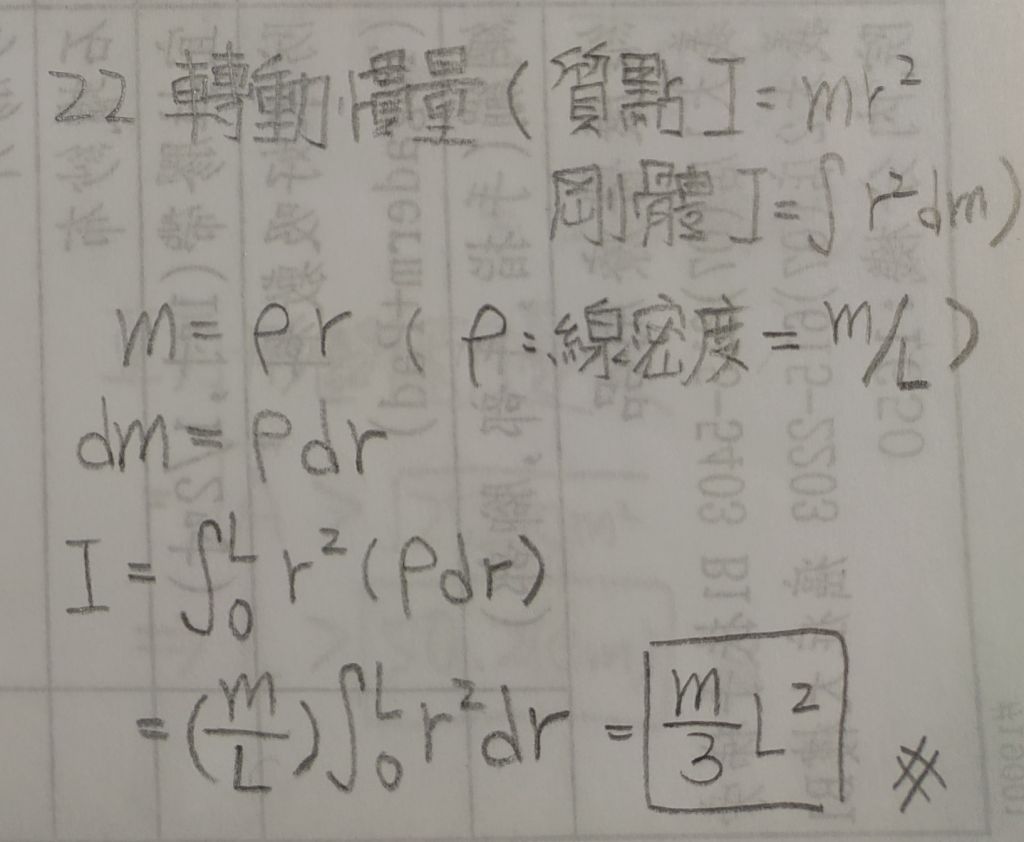 22 轉動慣量(質點 I = mr²
剛體 I = ∫ r²dm)
m = ρr ( ρ:線密度 = m/L )
dm = ρdr
I = ∫₀ᴸ r² (ρdr)
= (m/L) ∫₀ᴸ r² dr = m/3 L² ※